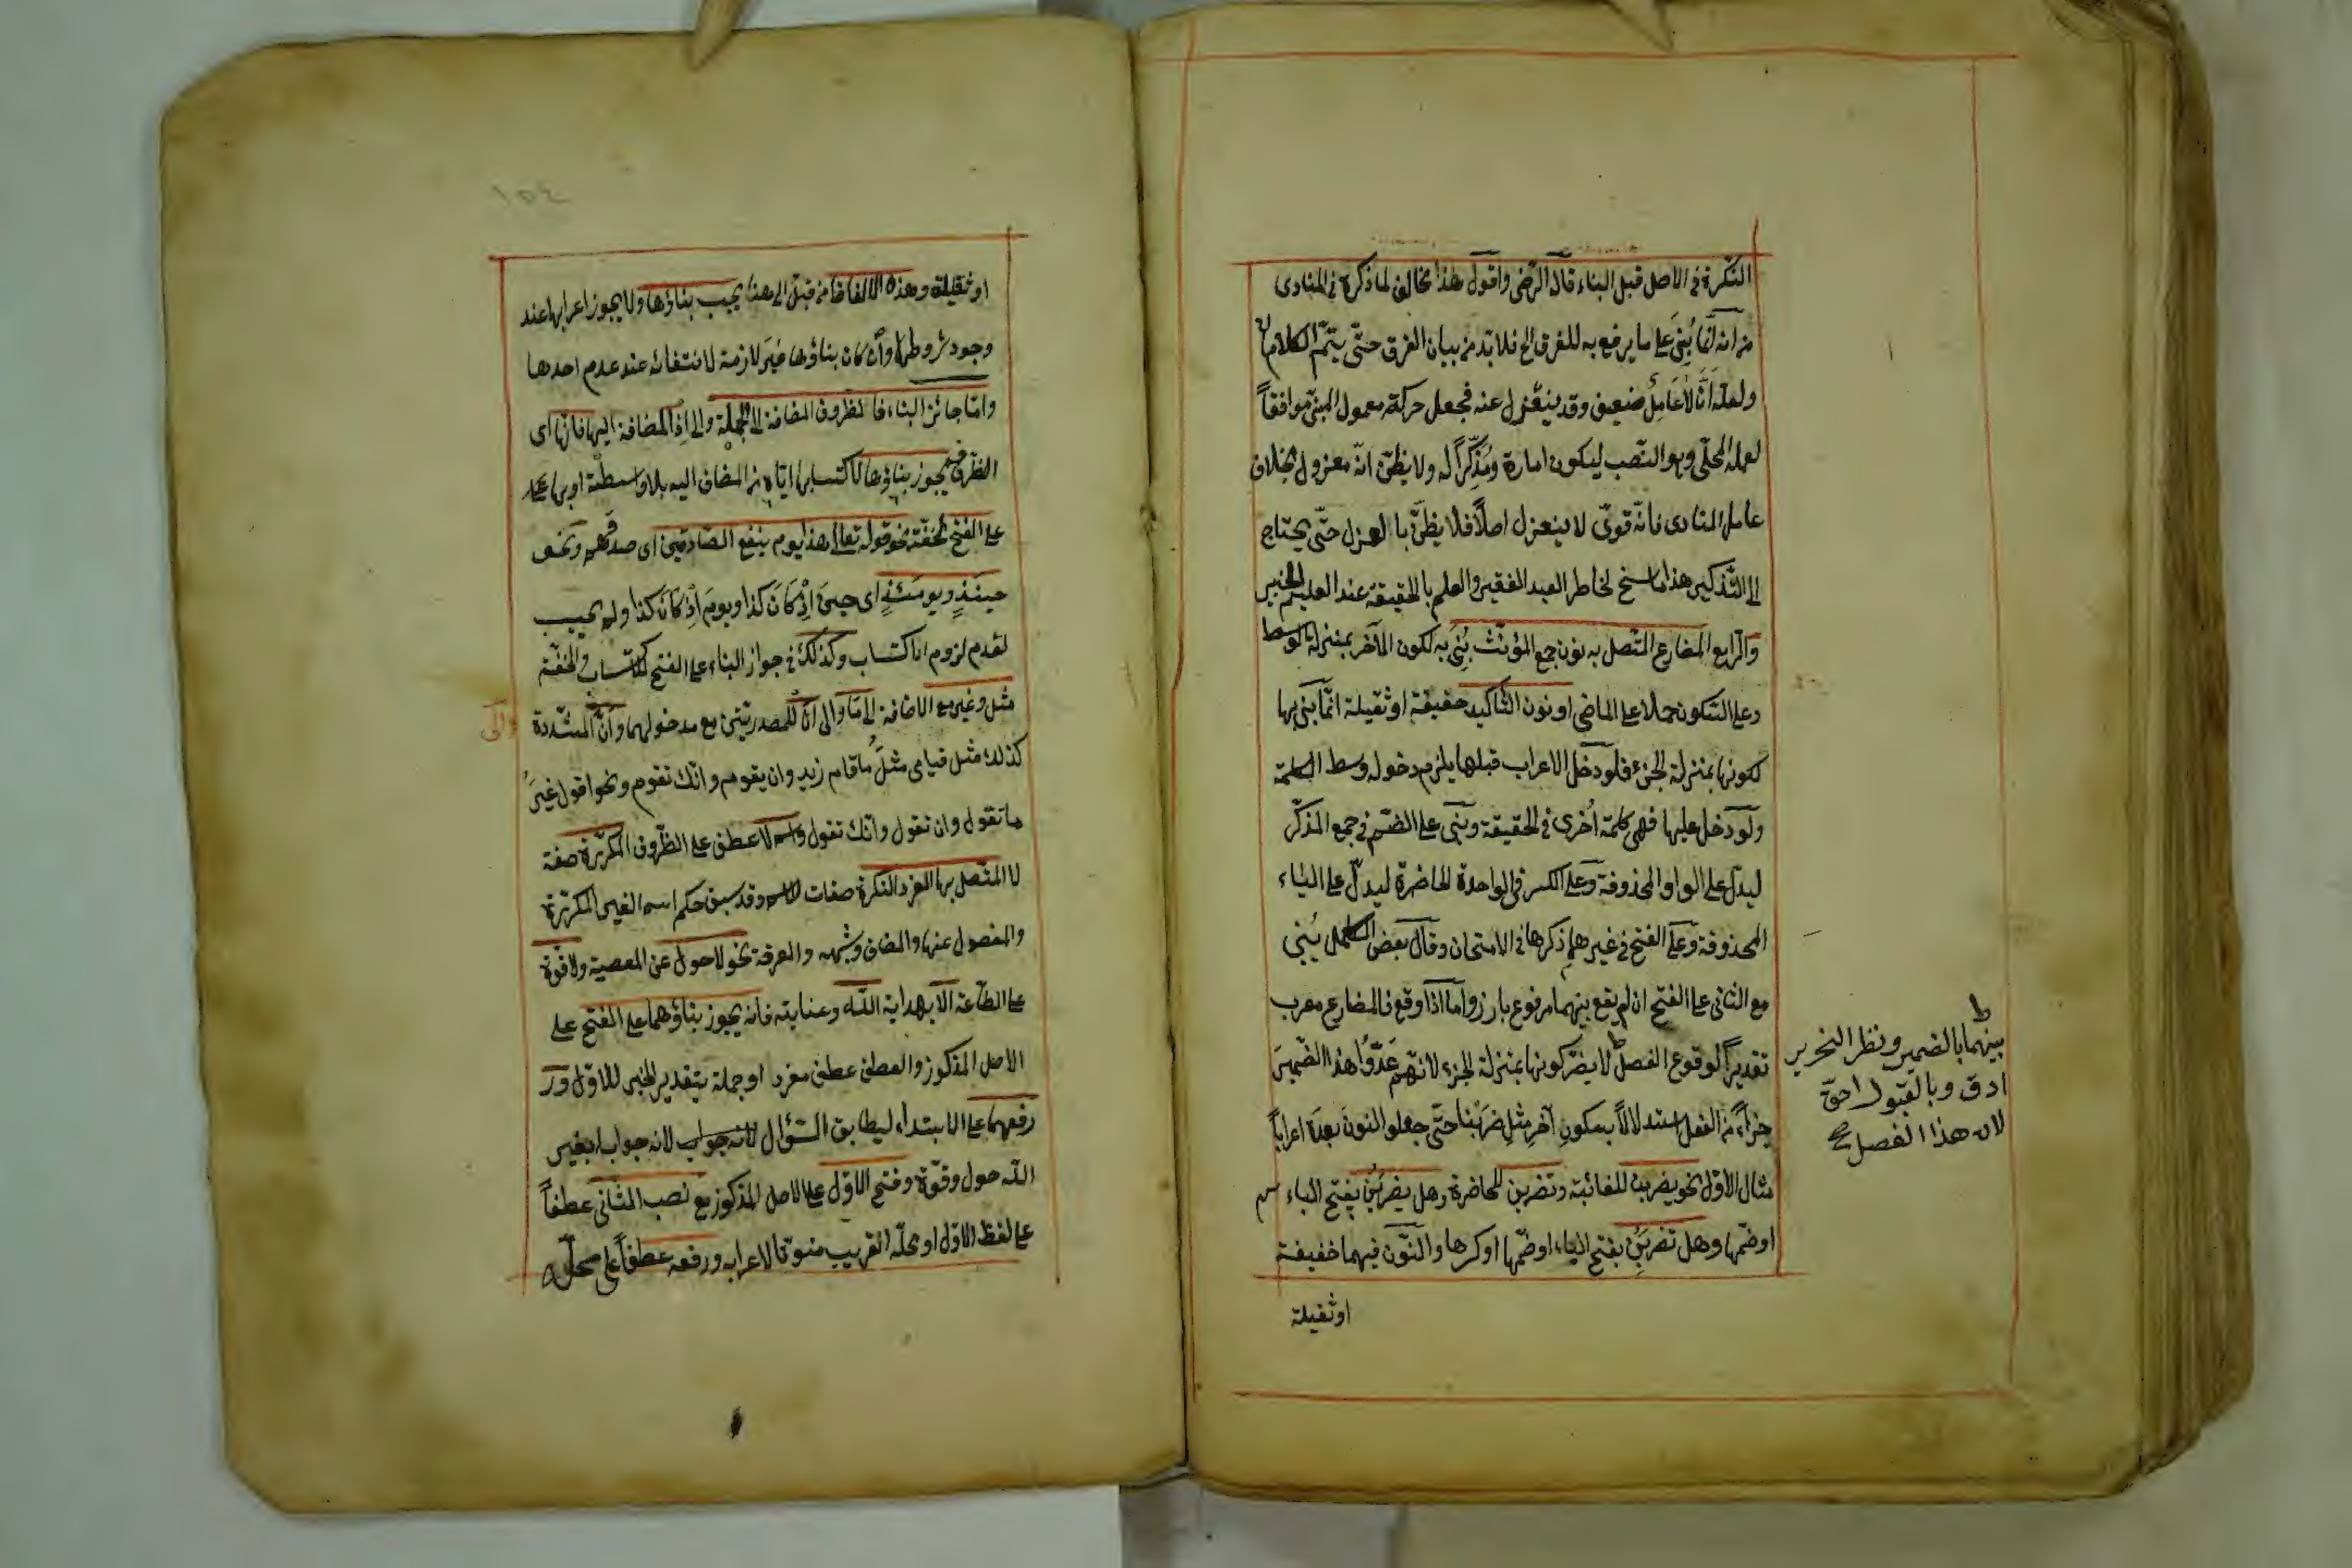 النكرة في الاصل قبل البناء قال الرضى واقول هذا مخالف لما ذكره في المنادى
من انه انما بُنِيَ على ما يرفع به للفرق الخ فلا بد من بيان الفرق حتّى يتمّ الكلام
ولعله انّ لا عامل ضعيف وقد ينعزل عنه فجعل حركة معمول المبنى موافقاً
لعمله المحلّى وهو النّصب ليكون امارة ومُذَكِّراً له ولا يظنّ انّه معزول بخلاف
عامل المنادى فانّه قوىّ لا ينعزل اصلاً فلا يظنّ بالعزل حتّى يحتاج
الى التّذكير هذا ما سنح لخاطر العبد الفقير والعلم بالحقيقة عند العليم الخبير
والرّابع المضارع المتّصل به نون جمع المؤنّث بُنِيَ به لكون الآخر بمنزلة الوسط
وعلى السّكون حملا على الماضى او نون التّأكيد حقيقة او ثقيلة انّما بنى بها
لكونها بمنزلة الجزء فلو دخل الاعراب قبلها يلزم دخوله وسط الكلمة
ولو دخل عليها فهى كلمة أخرى في الحقيقة وبنى على الضّمّ في جمع المذكّر
ليدلّ على الواو المحذوفة وعلى الكسر في الواحدة الحاضرة ليدلّ على الياء
المحذوفة وعلى الفتح في غيرهما ذكرها في الامتحان وقال بعض الكمّل بُنِي
مع الثّانى على الفتح ان لم يقع بينهما مرفوع بارز وامّا اذا وقع فالمضارع معرب
تقديراً لوقوع الفصل لا يضرّ كونها بمنزلة الجزء لانّهم عَدّوُا هذا الضّميرَ
جزأً من الفعل استدلالاً بسكونِ آخرِ مثلِ ضربْنا حتّى جعلوا النونَ بعدَهُ اعراباً
مثال الاوّل نحو يضربن للغائبة وتضربن للحاضرة وهل يضربَنْ بفتح الباء
او ضمّها وهل تضربَن بفتح الباء او ضمّها او كسرها والنّون فيهما خفيفة
او ثقيلة
بينهما بالضمير ونظر النحرير
ادقّ وبالقبول احقّ
لان هذا الفصل
١٥٤
او ثقيلة وهذه الالفاظ من قبل الى هنا يجب بناؤها ولا يجوز اعرابها عند
وجود شروطها وان كان بناؤها غير لازمة لانتفائه عند عدم احدها
وامّا جائز البناء فالظروف المضافة الى الجملة والى اذ المضافة اليها فانّها اى
الظّرف يجوز بناؤها لاكتسابها ايّاه من المضاف اليه بلا واسطة او بها على
على الفتح لخفّته نحو قوله تعالى هذا يوم ينفع الصّادقين اى صدقهم ونحو
حينئذٍ ويومئذٍ اى حينَ اذْ كانَ كذا ويومَ اذْ كانَ كذا ولم يجب
لعدم لزوم الاكتساب وكذلك في جواز البناء على الفتح للاكتساب والخفّة
مثل وغير مع الاضافة الى ما والى انْ المصدريّتين مع مدخولهما وانّ المشدّدة
والى
كذلك مثل قيامى مثلَ ما قام زيد وان يقوم وانّك تقوم ونحو اقول غيرَ
ما تقول وان تقول وانّك تقول واسم لا عطف على الظّروف المكرّرة صفة
لا المتّصل بها المفرد النكرة صفات وقد سبق حكم اسم الغير المكرّرة
والمفصول عنها والمضاف وشبهه والمعرفة نحو لا حول عن المعصية ولا قوّة
على الطّاعة الّا بهداية اللّه وعنايته فانه يجوز بناؤهما على الفتح على
الاصل المذكور والعطف عطف مفرد او جملة بتقدير الخبر للاوّل ور
رفعهما على الابتداء ليطابق السّؤال لانه جواب لانه جواب ابغير
اللّه حول وقوّة وفتح الاوّل على الاصل المذكور مع نصب الثّانى عطفاً
على لفظ الاوّل او محلّه القريب منوّنا لاعرابه ورفعه عطفاً على محلّه